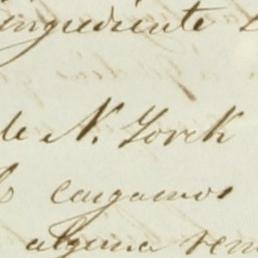 ingrediente
de N. Yorck
cargamos
alguna rem